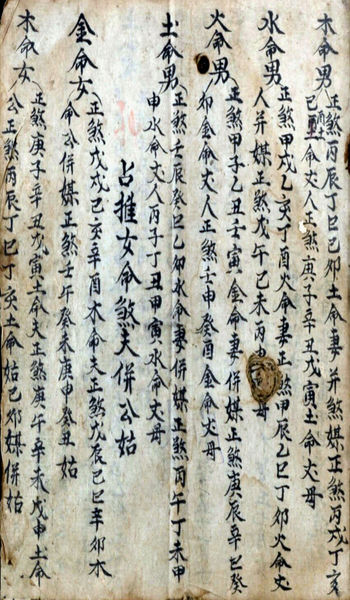 木命男 正煞丙辰丁巳己卯土命妻并煞媒正煞丙戌丁亥
命丈人正煞庚子辛丑戊寅土命丈母
水命男 正煞甲戌乙亥丁酉火命妻正煞甲辰乙巳丁卯火命丈
人并媒正煞戊午己未丙申母
火命男 正煞甲子乙丑壬寅金命妻併媒正煞庚辰辛巳癸
卯金命丈人正煞壬申癸酉金命丈母
土命男 正煞壬辰癸巳乙卯水命妻併媒正煞丙午丁未甲
申水命丈人丙子丁丑甲寅水命丈母
占推女命煞夫併公姑
金命女 正煞戊戌己亥辛酉木命夫正煞戊辰己巳辛卯木
命公併媒正煞壬午癸未庚申癸丑姑
木命女 正煞庚子辛丑戊寅土命夫正煞庚午辛未戊申土命
公正煞丙辰丁巳丁亥土命姑己卯媒併姑